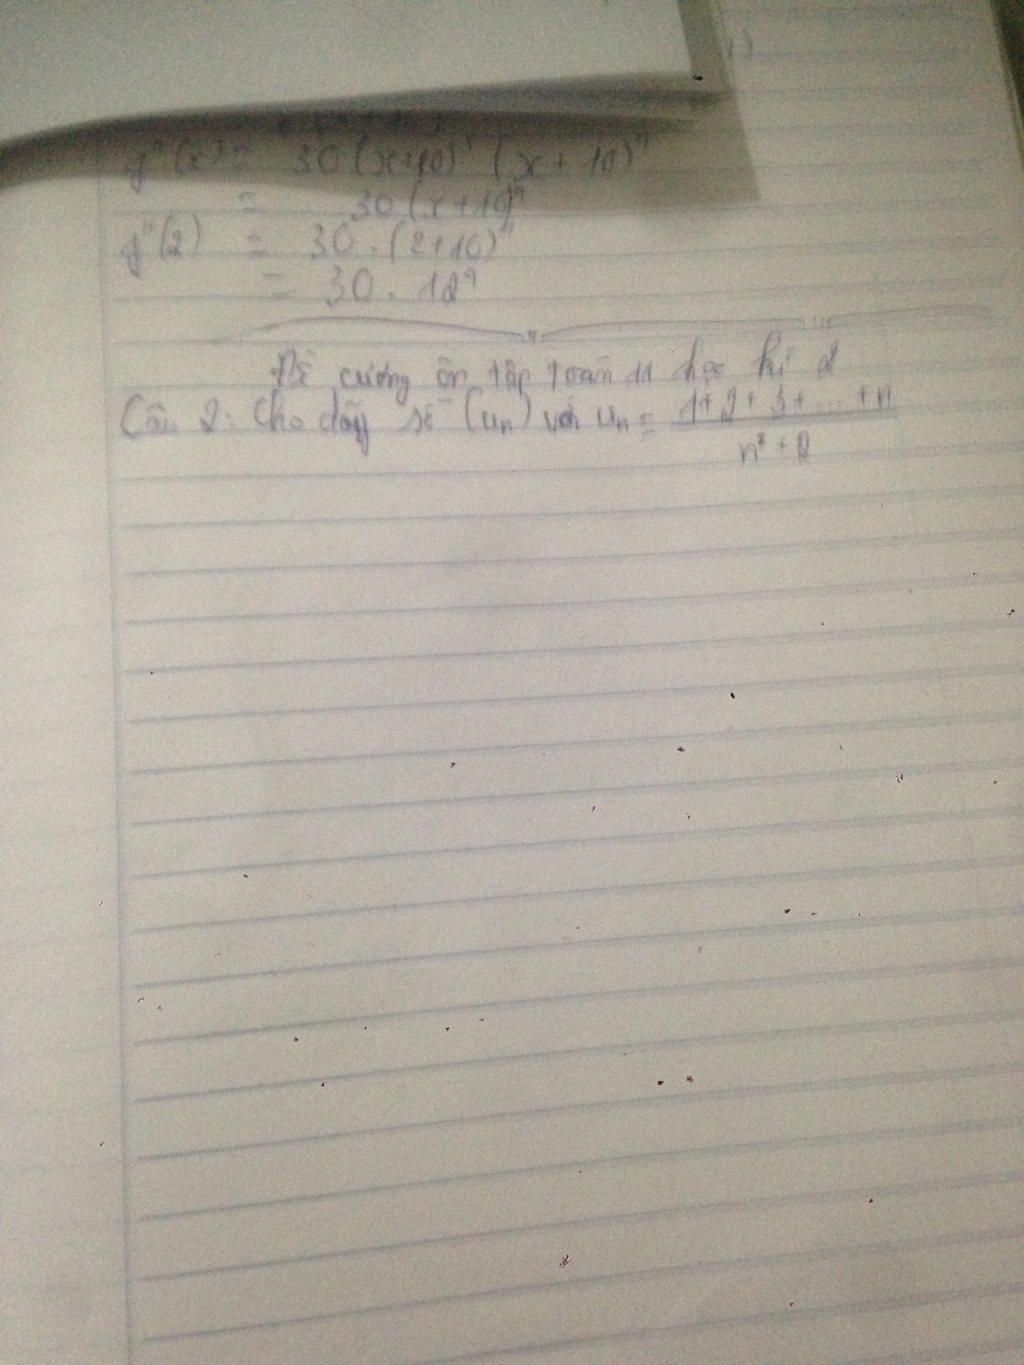 f"(x) = 30(x+10)' (x+10)⁹
= 30(x+10)⁹
f"(2) = 30.(2+10)⁹
= 30.12⁹
Đề cương ôn tập toán 11 học kì 2
Câu 2: Cho dãy số (uₙ) với uₙ = (1+2+3+...+n)/(n²+2)